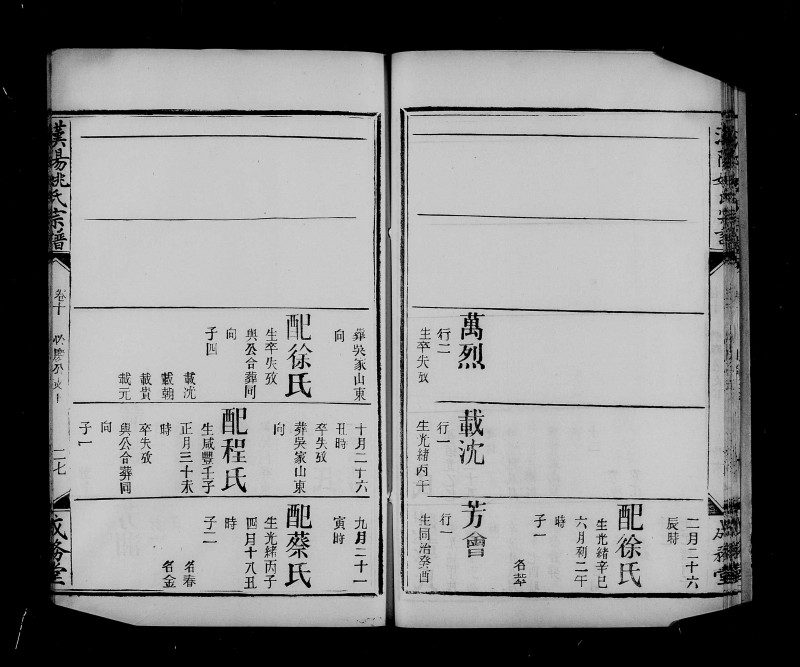 漢陽姚氏宗譜
成務堂
萬烈
行二
生卒失攷
載沈
行一
生光緒丙午
二月二十六
辰時
配徐氏
生光緒辛巳
六月初二午
時
子一
名萃
芳會
行一
生同治癸酉
葬吳家山東
向
配徐氏
生卒失攷
與公合葬同
向
子四
載沈
載朝
載貴
載元
十月二十六
丑時
卒失攷
葬吳家山東
向
配程氏
生咸豐壬子
正月三十未
時
卒失攷
與公合葬同
向
子一
九月二十一
寅時
配蔡氏
生光緒丙子
四月十八丑
時
子二
名春
名金
漢陽姚氏宗譜
卷十
二七
成務堂